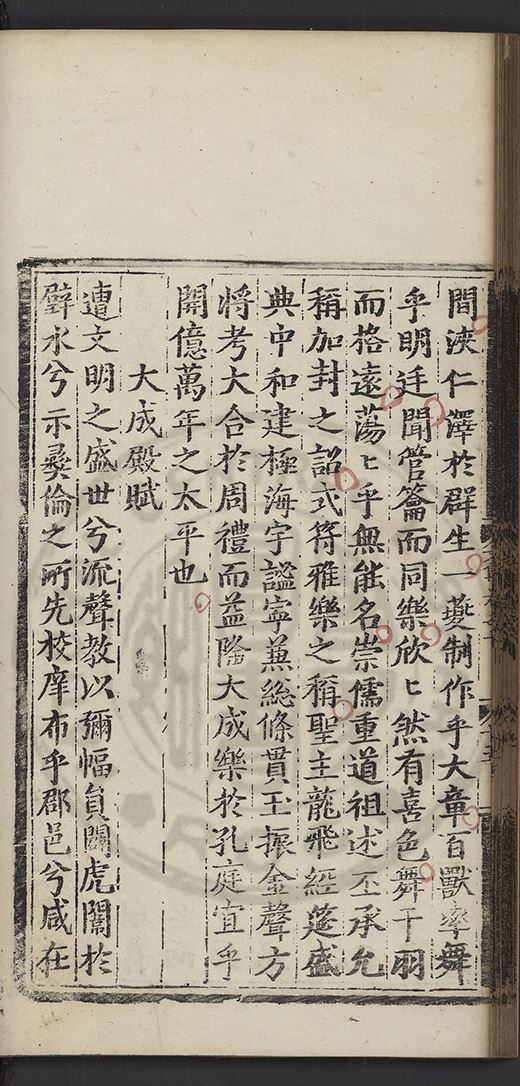 間浹仁澤於群生一夔制作乎大章百獸率舞
乎明廷聞管籥而同樂欣〻然有喜色舞干羽
而格遠蕩〻乎無能名崇儒重道祖述丕承允
稱加封之詔式符雅樂之稱聖主龍飛經筵盛
典中和建極海宇謐寧兼総條貫玉振金聲方
将考大合於周禮而益隆大成樂於孔庭宜乎
開億萬年之太平也
大成殿賦
遭文明之盛世兮流聲教以彌幅員闢虎闈於
璧水兮示彛倫之所先校庠布乎郡邑兮咸在